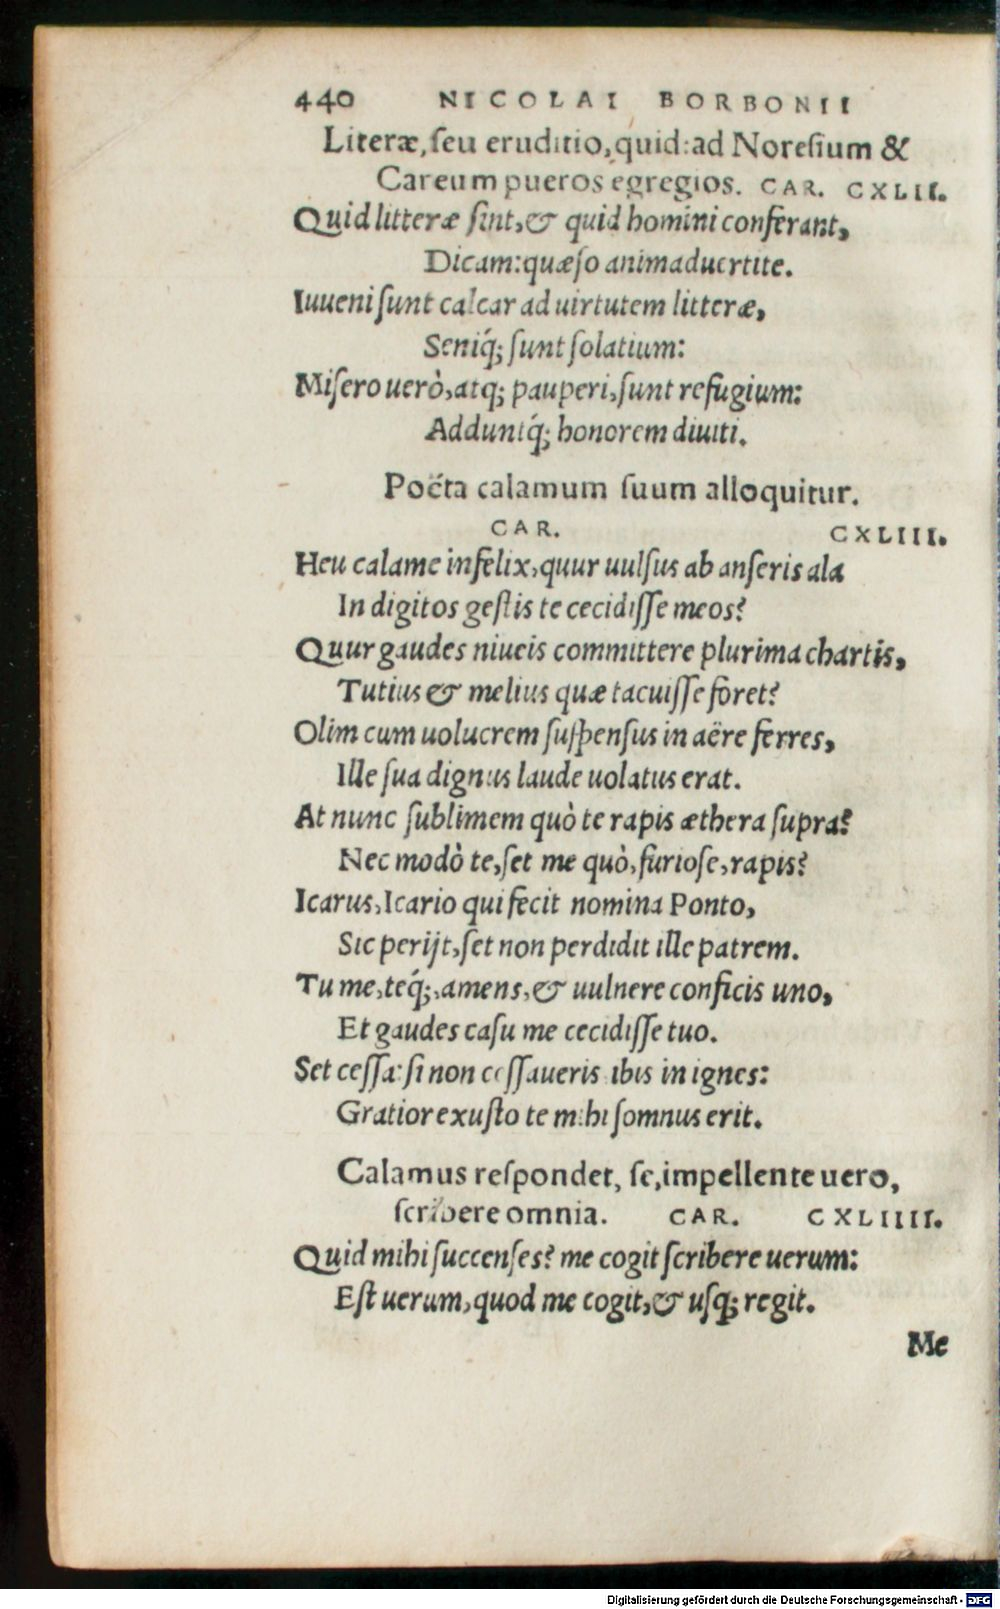 440 NICOLAI BORBONII
Literæ, ſeu eruditio, quid: ad Noreſium &
Careum pueros egregios. CAR. CXLII.
Quid litteræ ſint, & quid homini conferant,
Dicam: quæſo animaduertite.
Iuueni ſunt calcar ad uirtutem litteræ,
Seniq́; ſunt ſolatium:
Miſero uerò, atq; pauperi, ſunt refugium:
Adduntq́; honorem diuiti.
Poëta calamum ſuum alloquitur.
CAR. CXLIII.
Heu calame infelix, quur uulſus ab anſeris ala
In digitos geſtis te cecidiſſe meos?
Quur gaudes niueis committere plurima chartis,
Tutius & melius quæ tacuiſſe foret?
Olim cum uolucrem ſuſpenſus in aëre ferres,
Ille ſua dignus laude uolatus erat.
At nunc ſublimem quò te rapis æthera ſupra?
Nec modò te, ſet me quò, furioſe, rapis?
Icarus, Icario qui fecit nomina Ponto,
Sic perijt, ſet non perdidit ille patrem.
Tu me, teq́;, amens, & uulnere conficis uno,
Et gaudes caſu me cecidiſſe tuo.
Set ceſſa: ſi non ceſſaueris ibis in ignes:
Gratior exuſto te mihi ſomnus erit.
Calamus reſpondet, ſe, impellente uero,
ſcribere omnia. CAR. CXLIIII.
Quid mihi ſuccenſes? me cogit ſcribere uerum:
Eſt uerum, quod me cogit, & uſq; regit.
Me
Digitalisierung gefördert durch die Deutsche Forschungsgemeinschaft - DFG